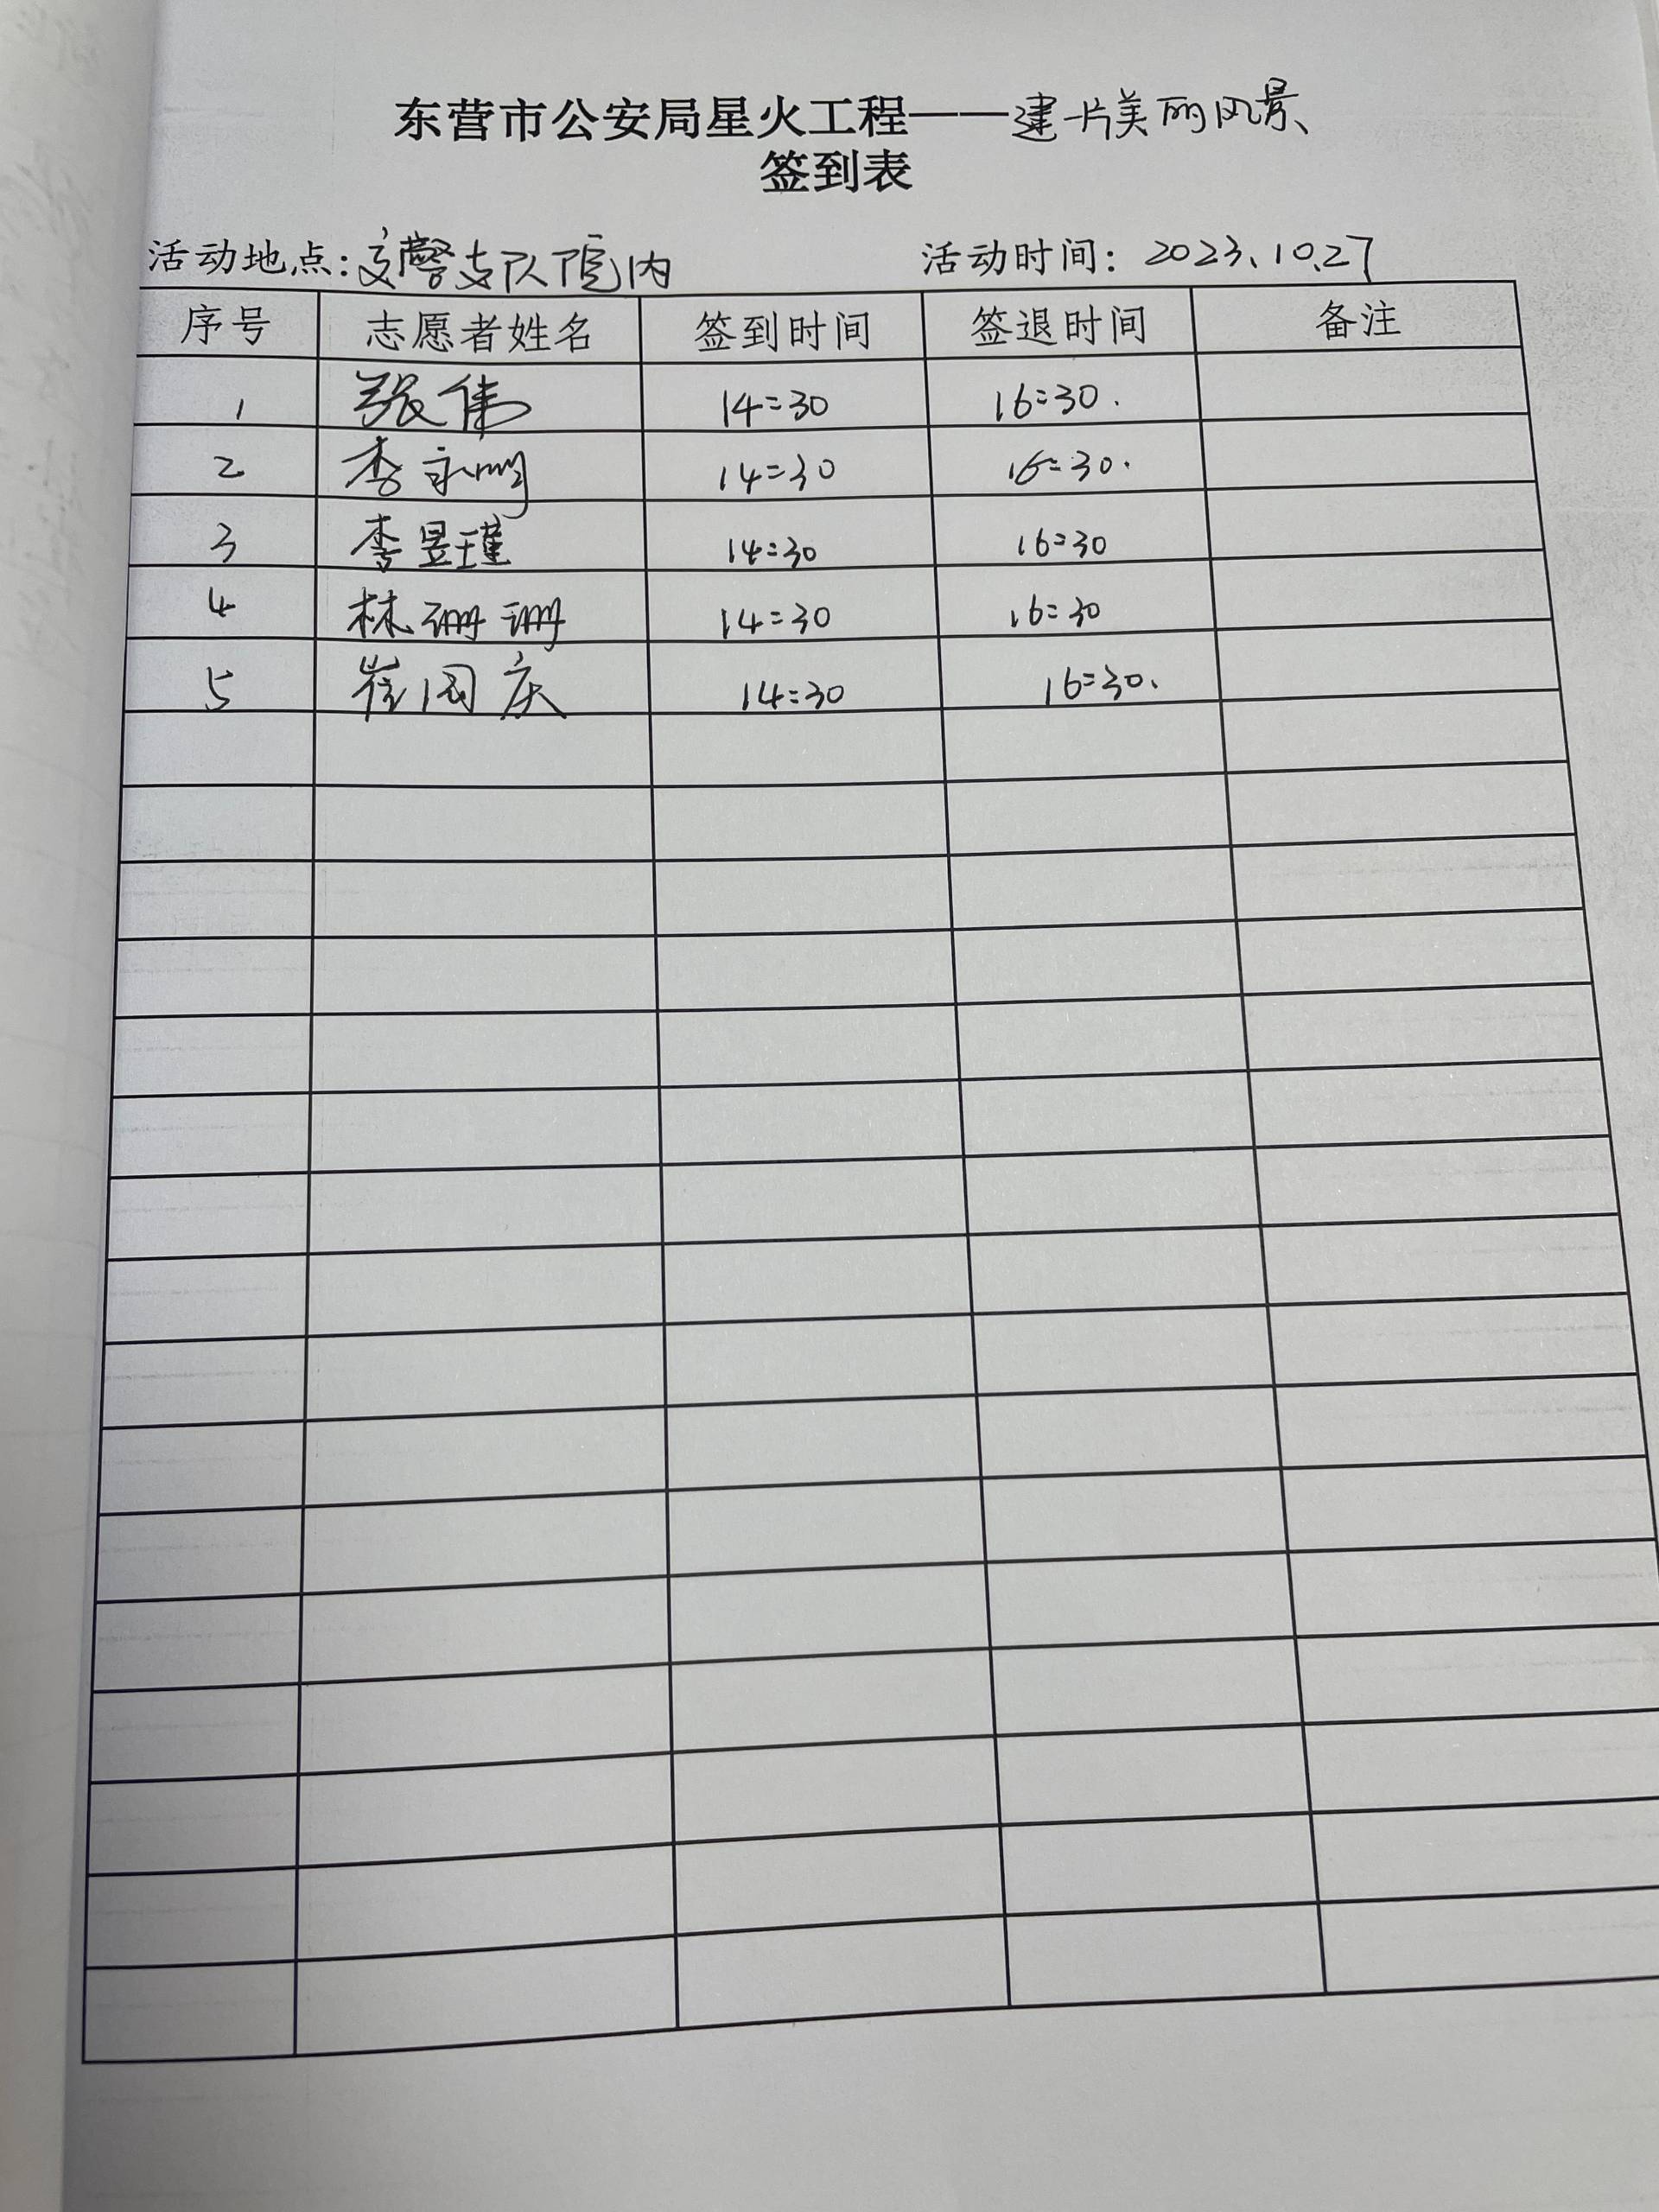 东营市公安局星火工程——建一片美丽风景
签到表
活动地点:交警支队院内 活动时间: 2023.10.27
序号 志愿者姓名 签到时间 签退时间 备注
1 张伟 14:30 16:30.
2 李永明 14:30 16:30.
3 李昱瑾 14:30 16:30
4 林珊珊 14:30 16:30
5 崔国庆 14:30 16:30.